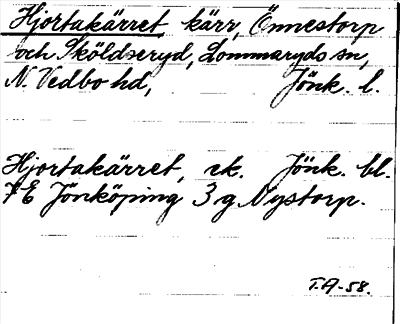 Hjortakärret kärr, Önnestorp
och Sköldseryd, Lommaryds sn,
N. Vedbo hd, Jönk. l.
Hjortakärret, ek. Jönk. bl.
7E Jönköping 3g Nystorp.
T.A-58.